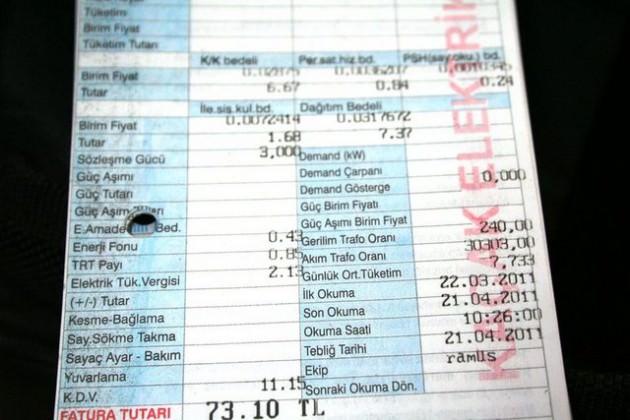 Birim Fiyat
Tüketim Tutarı
K/K bedeli Per.sat.hiz.bd. PSH(say.oku.) bd.
Birim Fiyat
Tutar 6.67 0.84 0.24
İle.sis.kul.bd. Dağıtım Bedeli
Birim Fiyat 0.0072414 0.0317672
Tutar 1.68 7.37
Sözleşme Gücü 3,000 Demand (kW)
Güç Aşımı Demand Çarpanı 0,000
Güç Tutarı Demand Gösterge
Güç Aşım Güç Birim Fiyatı
E.Amade Bed. Güç Aşımı Birim Fiyat
Enerji Fonu 0.43 Gerilim Trafo Oranı 240,00
TRT Payı 0.85 Akım Trafo Oranı 30303,00
Elektrik Tük.Vergisi 2.13 Günlük Ort.Tüketim 7,733
(+/-) Tutar İlk Okuma 22.03.2011
Kesme-Bağlama Son Okuma 21.04.2011
Say.Sökme Takma Okuma Saati 10:26:00
Sayaç Ayar - Bakım Tebliğ Tarihi 21.04.2011
Yuvarlama Ekip ramüs
K.D.V. 11.15 Sonraki Okuma Dön.
FATURA TUTARI 73.10 TL
AK ELEKTRİK